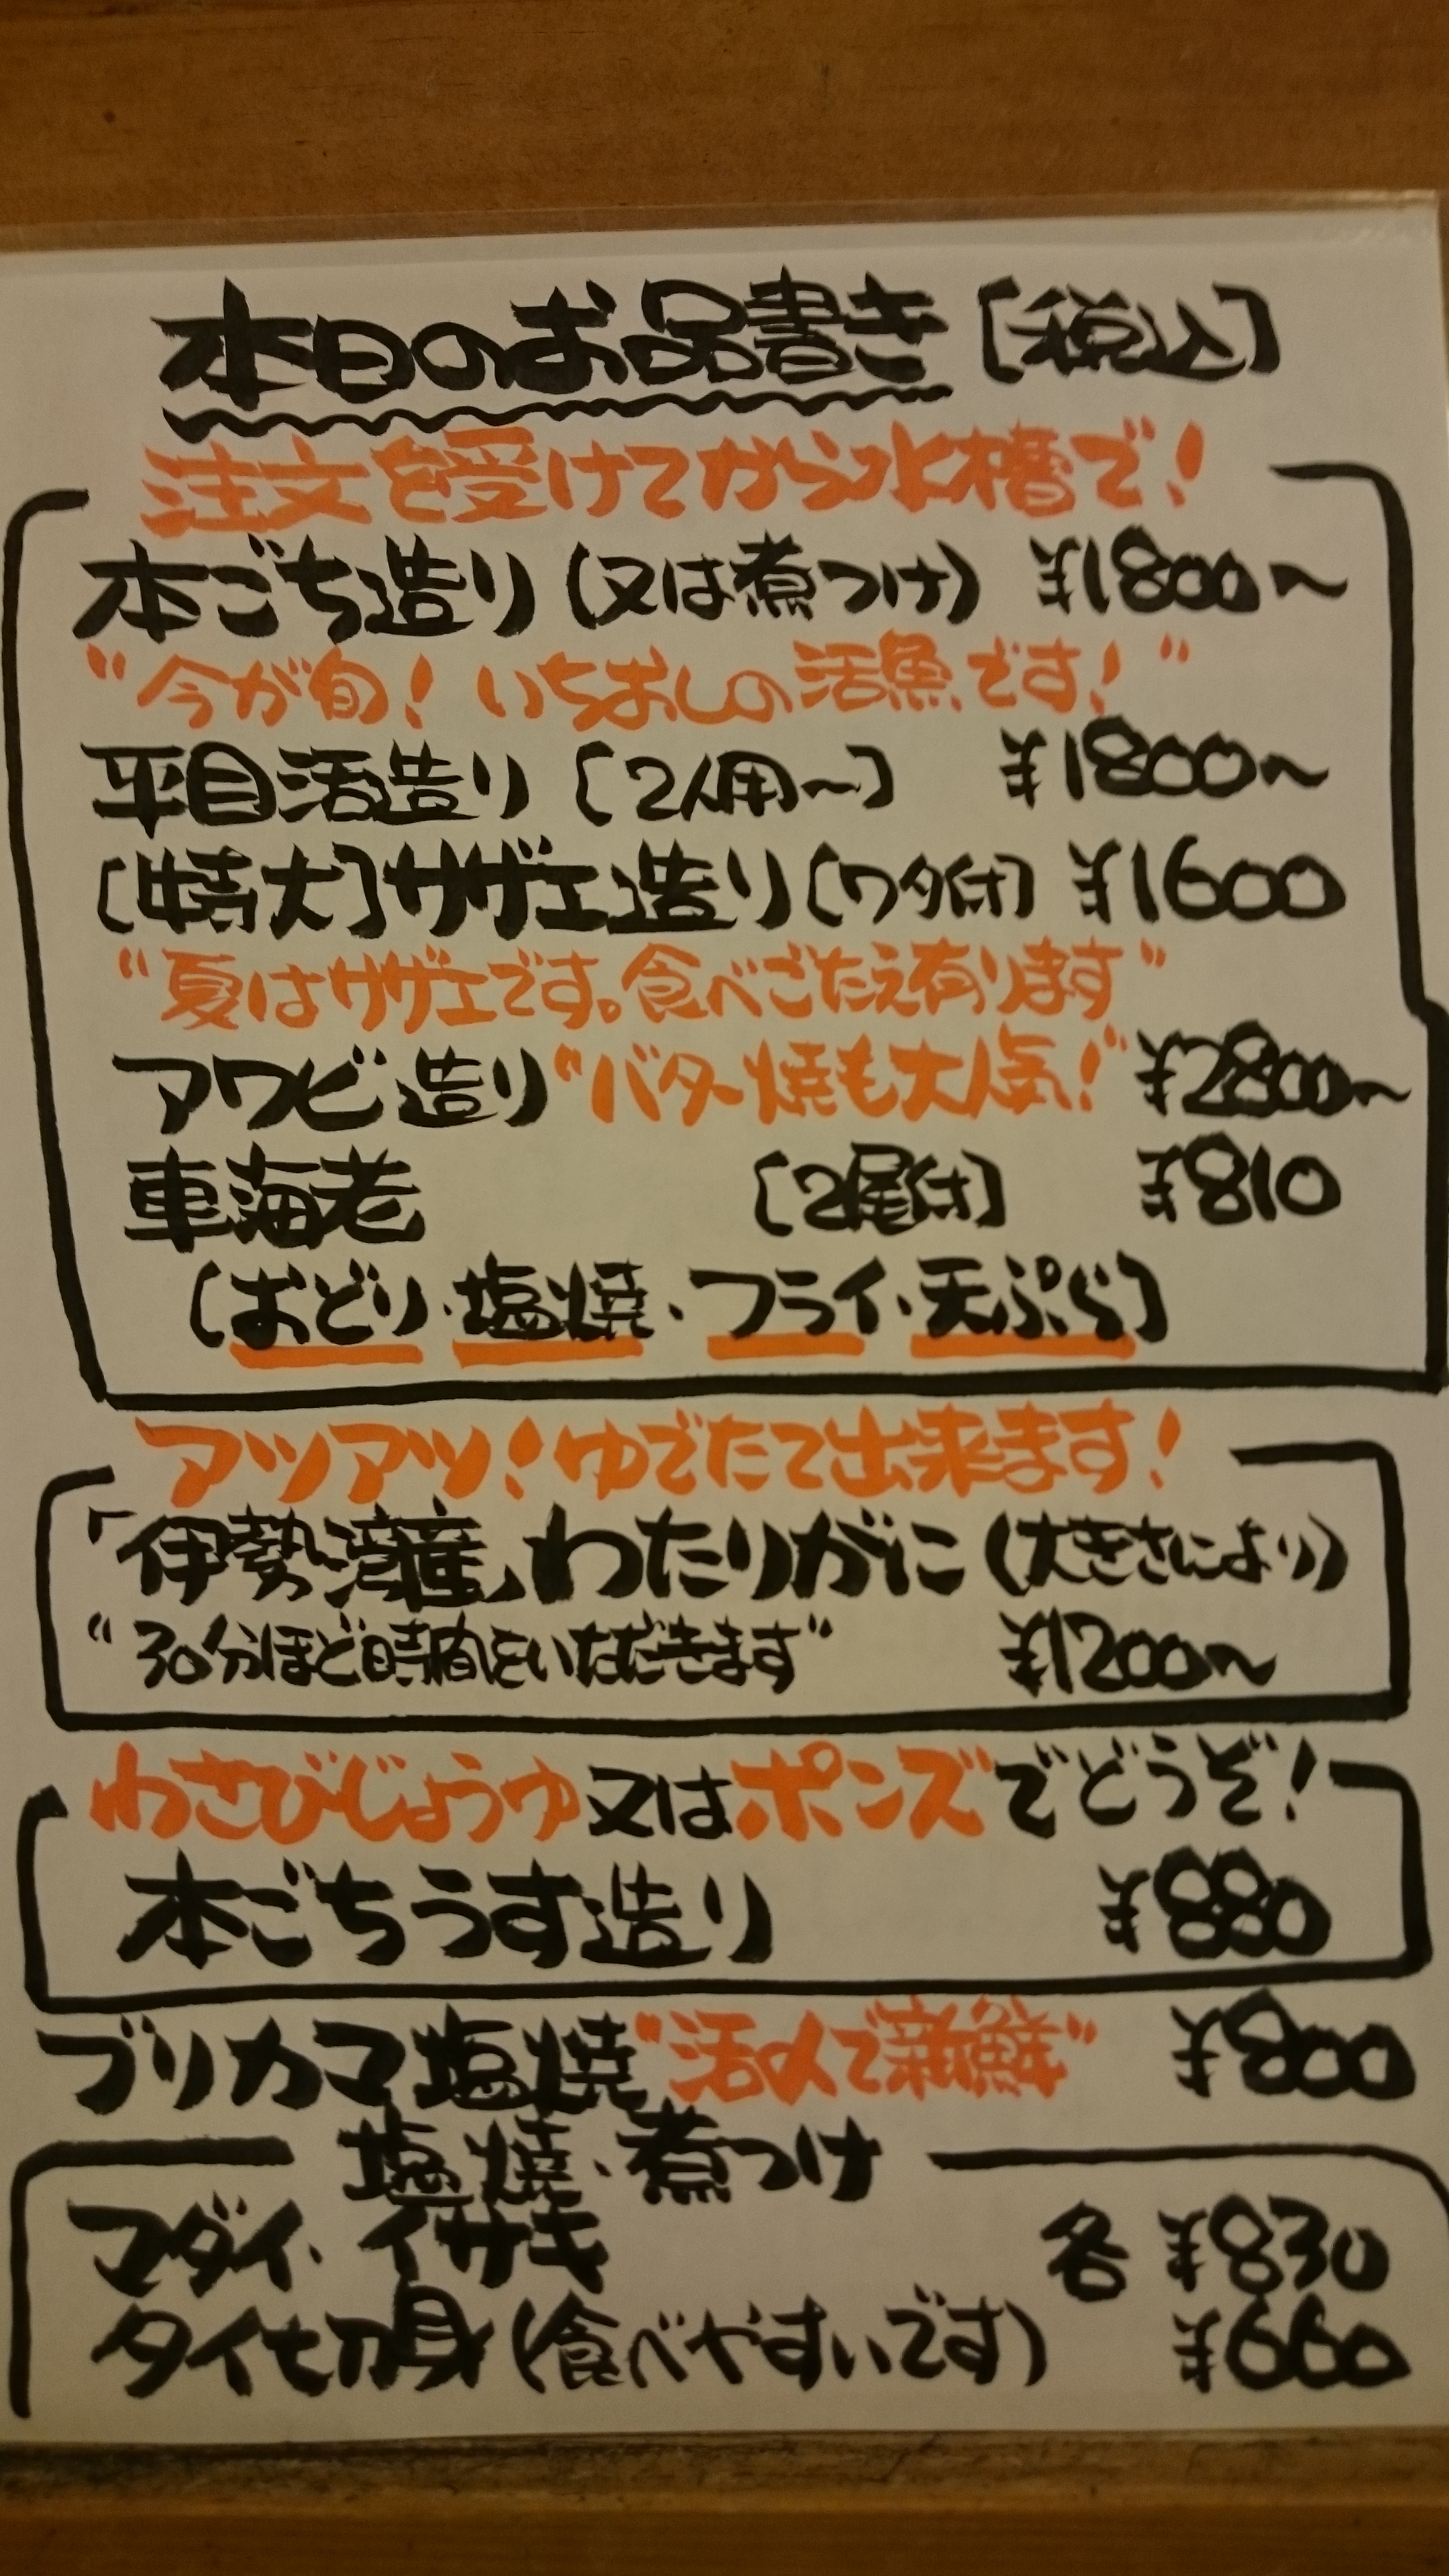 本日のお品書き [税込]
注文を受けてから水槽で!
本ごち造り (又は煮つけ) ¥1800〜
"今が旬! いちおしの活魚です!"
平目活造り [2人用〜] ¥1800〜
[特大]サザエ造り [ワタ付] ¥1600
"夏はサザエです。食べごたえ有ります"
アワビ造り "バター焼も大人気!" ¥2800〜
車海老 [2尾付] ¥810
[おどり・塩焼・フライ・天ぷら]
アツアツ!ゆでたて出来ます!
「伊勢湾産」わたりがに (大きさにより)
"30分ほど時間をいただきます" ¥1200〜
わさびじょうゆ又はポンズでどうぞ!
本ごちうす造り ¥880
ブリカマ塩焼 "活〆で新鮮" ¥800
塩焼・煮つけ
マダイ・イサキ 各 ¥830
タイ切身 (食べやすいです) ¥660